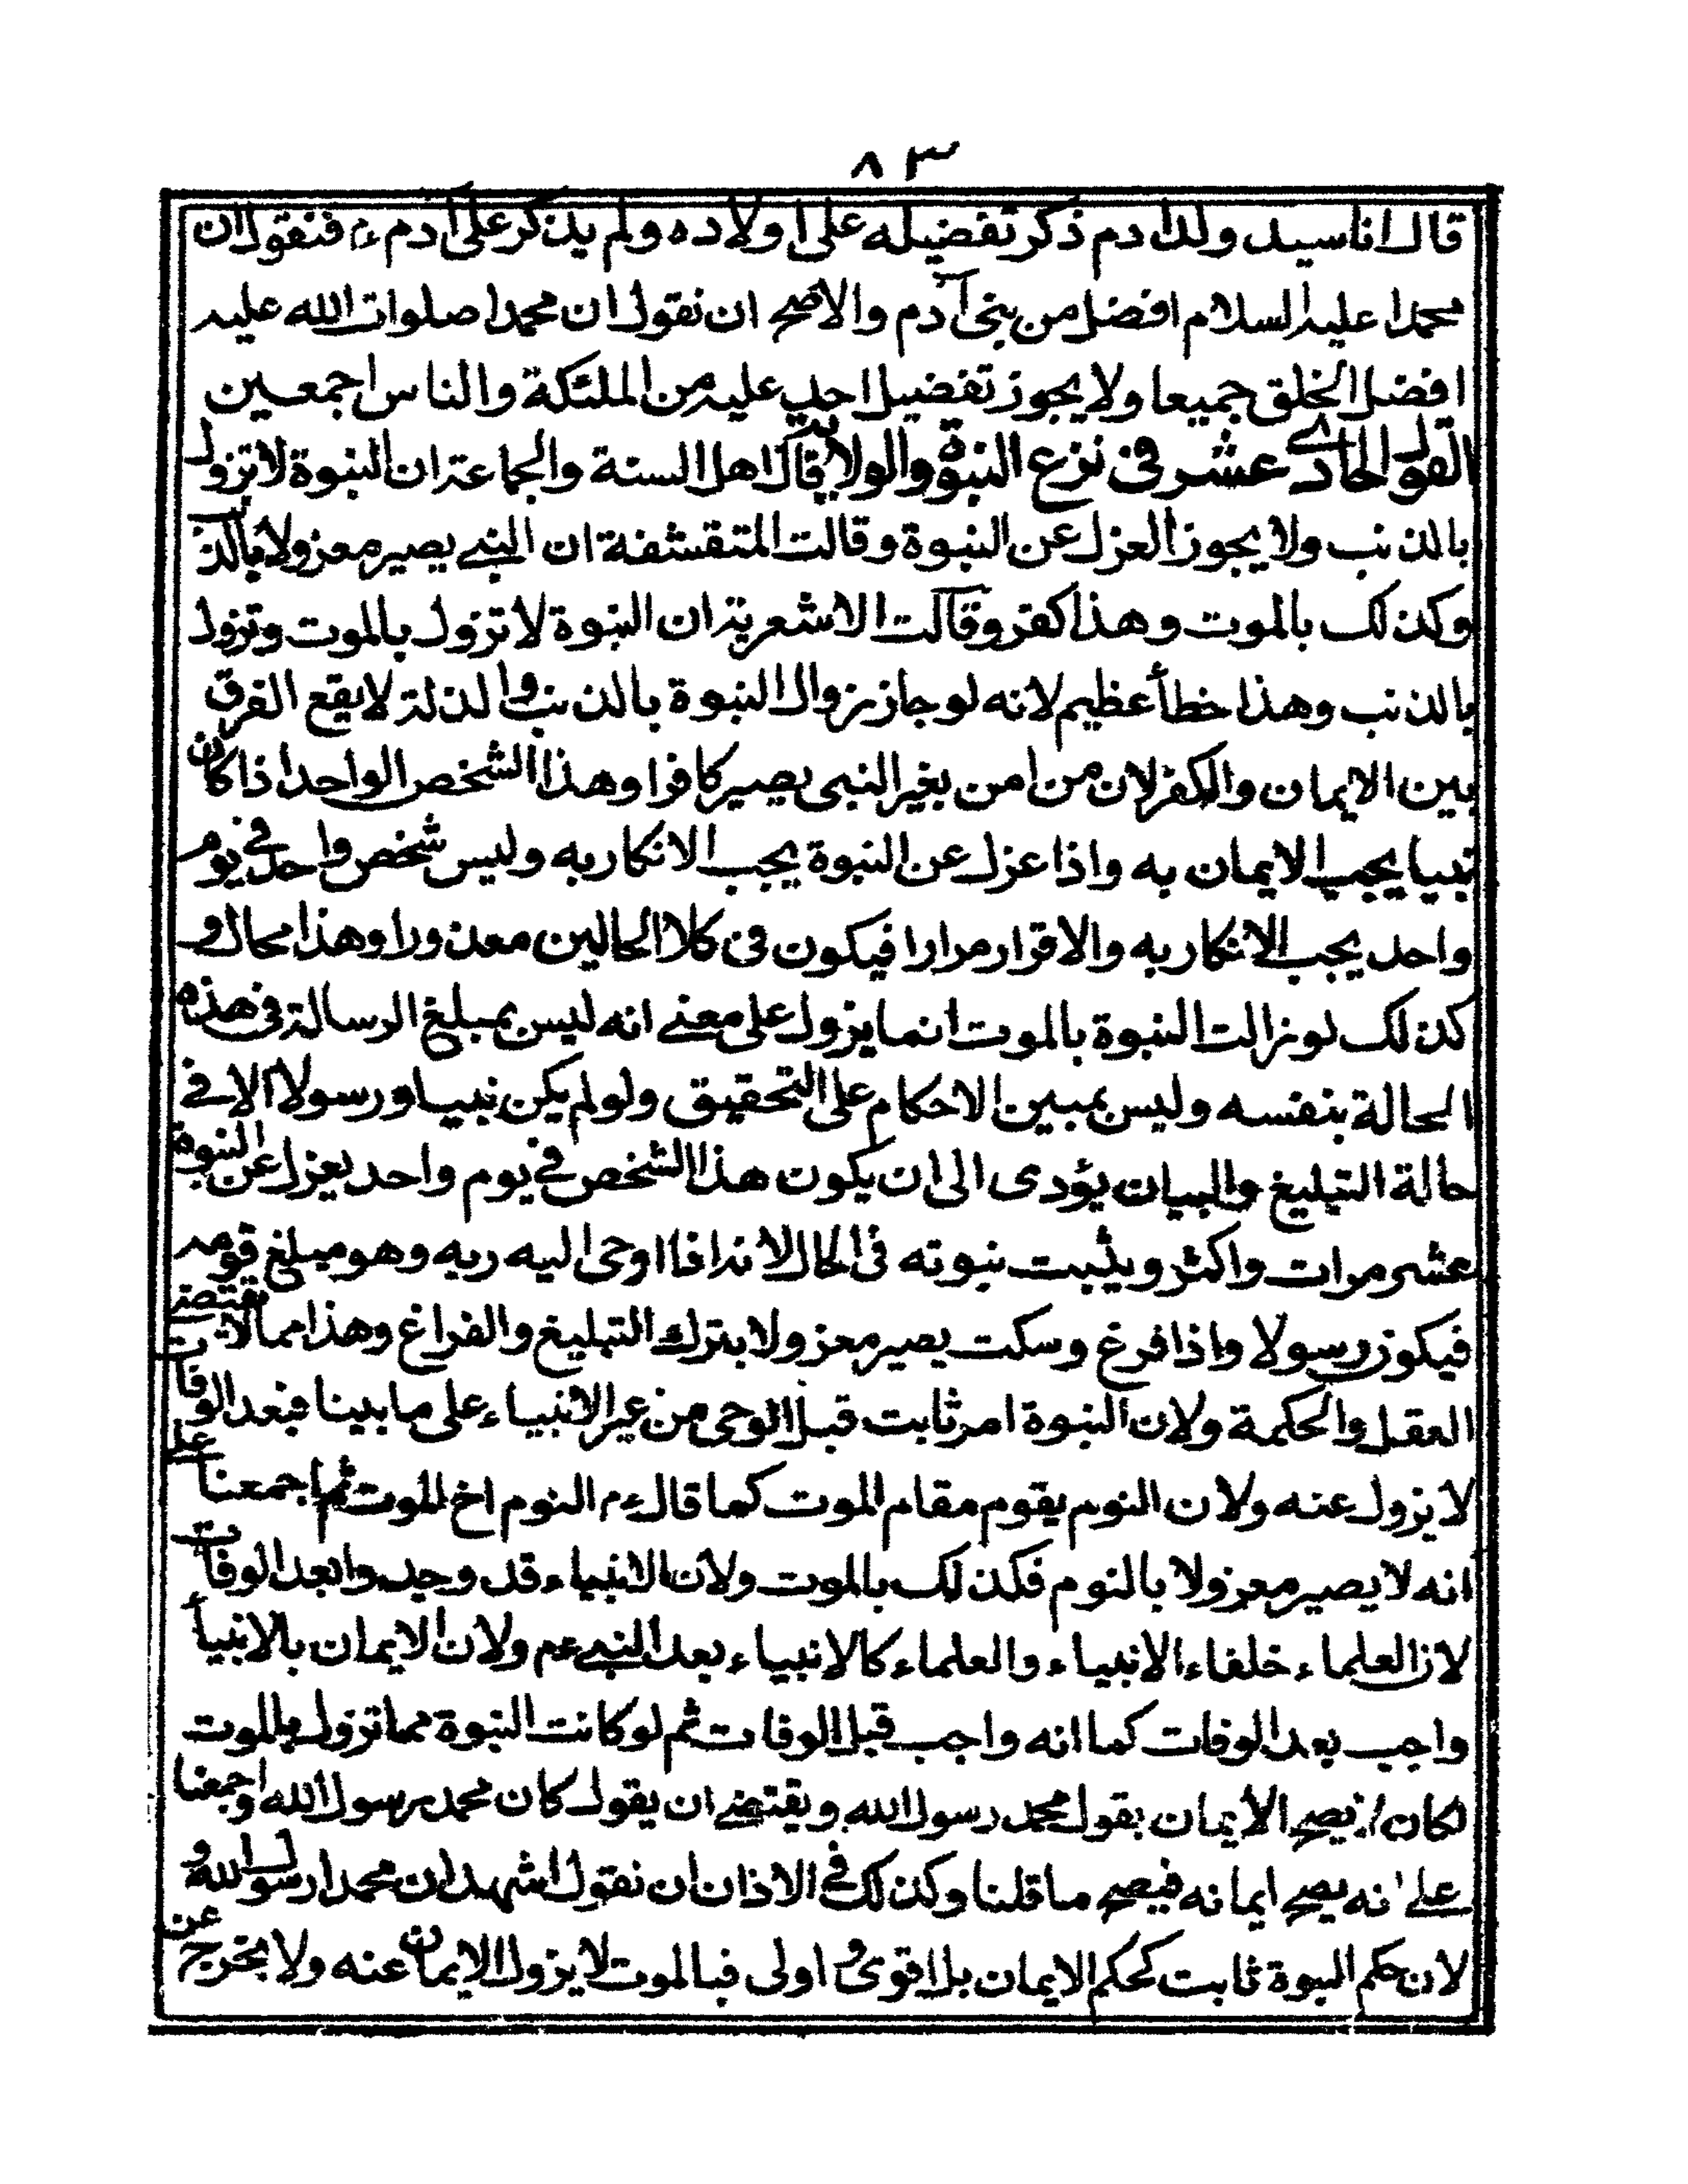 ٨٣
قال انا سيد ولد ادم ذكر تفضيله على اولاده ولم يذكر على ادم ء م فنقول ان
محمدا عليه السلام افضل من بنى آدم والاصح ان نقول ان محمدا صلوات الله عليه
افضل الخلق جميعا ولا يجوز تفضيل احد عليه من الملئكة والناس اجمعين
القول الحادى عشر فى نزع النبوة والولاية قال اهل السنة والجماعة ان النبوة لا تزول
بالذنب ولا يجوز العزل عن النبوة وقالت المتقشفة ان النبى يصير معزولا بالذنب
وكذلك بالموت وهذا كفر وقالت الاشعرية ان النبوة لا تزول بالموت وتزول
بالذنب وهذا خطأ عظيم لانه لو جاز زوال النبوة بالذنب والذلة لا يقع الفرق
بين الايمان والكفر لان من امن بغير النبى يصير كافرا وهذا الشخص الواحد اذا كان
نبيا يجب الايمان به واذا عزل عن النبوة يجب الانكار به وليس شخص واحد فى يوم
واحد يجب الانكار به والاقرار مرارا فيكون فى كلا الحالين معذورا وهذا محال و
كذلك لو زالت النبوة بالموت انما يزول على معنى انه ليس بمبلغ الرسالة فى هذه
الحالة بنفسه وليس بمبين الاحكام على التحقيق ولو لم يكن نبيا ورسولا الا فى
حالة التبليغ والبيان يؤدى الى ان يكون هذا الشخص فى يوم واحد يعزل عن النبوة
عشر مرات واكثر ويثبت نبوته فى الحال لانه اذا اوحى اليه ربه وهو مبلغ قومه
فيكون رسولا واذا فرغ وسكت يصير معزولا بترك التبليغ والفراغ وهذا مما لا يقتضيه
العقل والحكمة ولان النبوة امر ثابت قبل الوحى من غير الانبياء على ما بينا فبعد الوفات
لا يزول عنه ولان النوم يقوم مقام الموت كما قال ء م النوم اخ الموت ثم اجمعنا على
انه لا يصير معزولا بالنوم فكذلك بالموت ولان الانبياء قد وجدوا بعد الوفات
لان العلماء خلفاء الانبياء والعلماء كالانبياء بعد النبى ءم ولان الايمان بالانبياء
واجب بعد الوفات كما انه واجب قبل الوفات ثم لو كانت النبوة مما تزول بالموت
لكان لا يصح الايمان بقول محمد رسول الله ويقتضى ان يقول كان محمد رسول الله واجمعنا
على انه يصح ايمانه فيصح ما قلنا وكذلك فى الاذان ان نقول اشهد ان محمدا رسول الله و
لان حكم النبوة ثابت كحكم الايمان بل اقوى و اولى فبالموت لا يزول الايمان عنه ولا يخرج عن